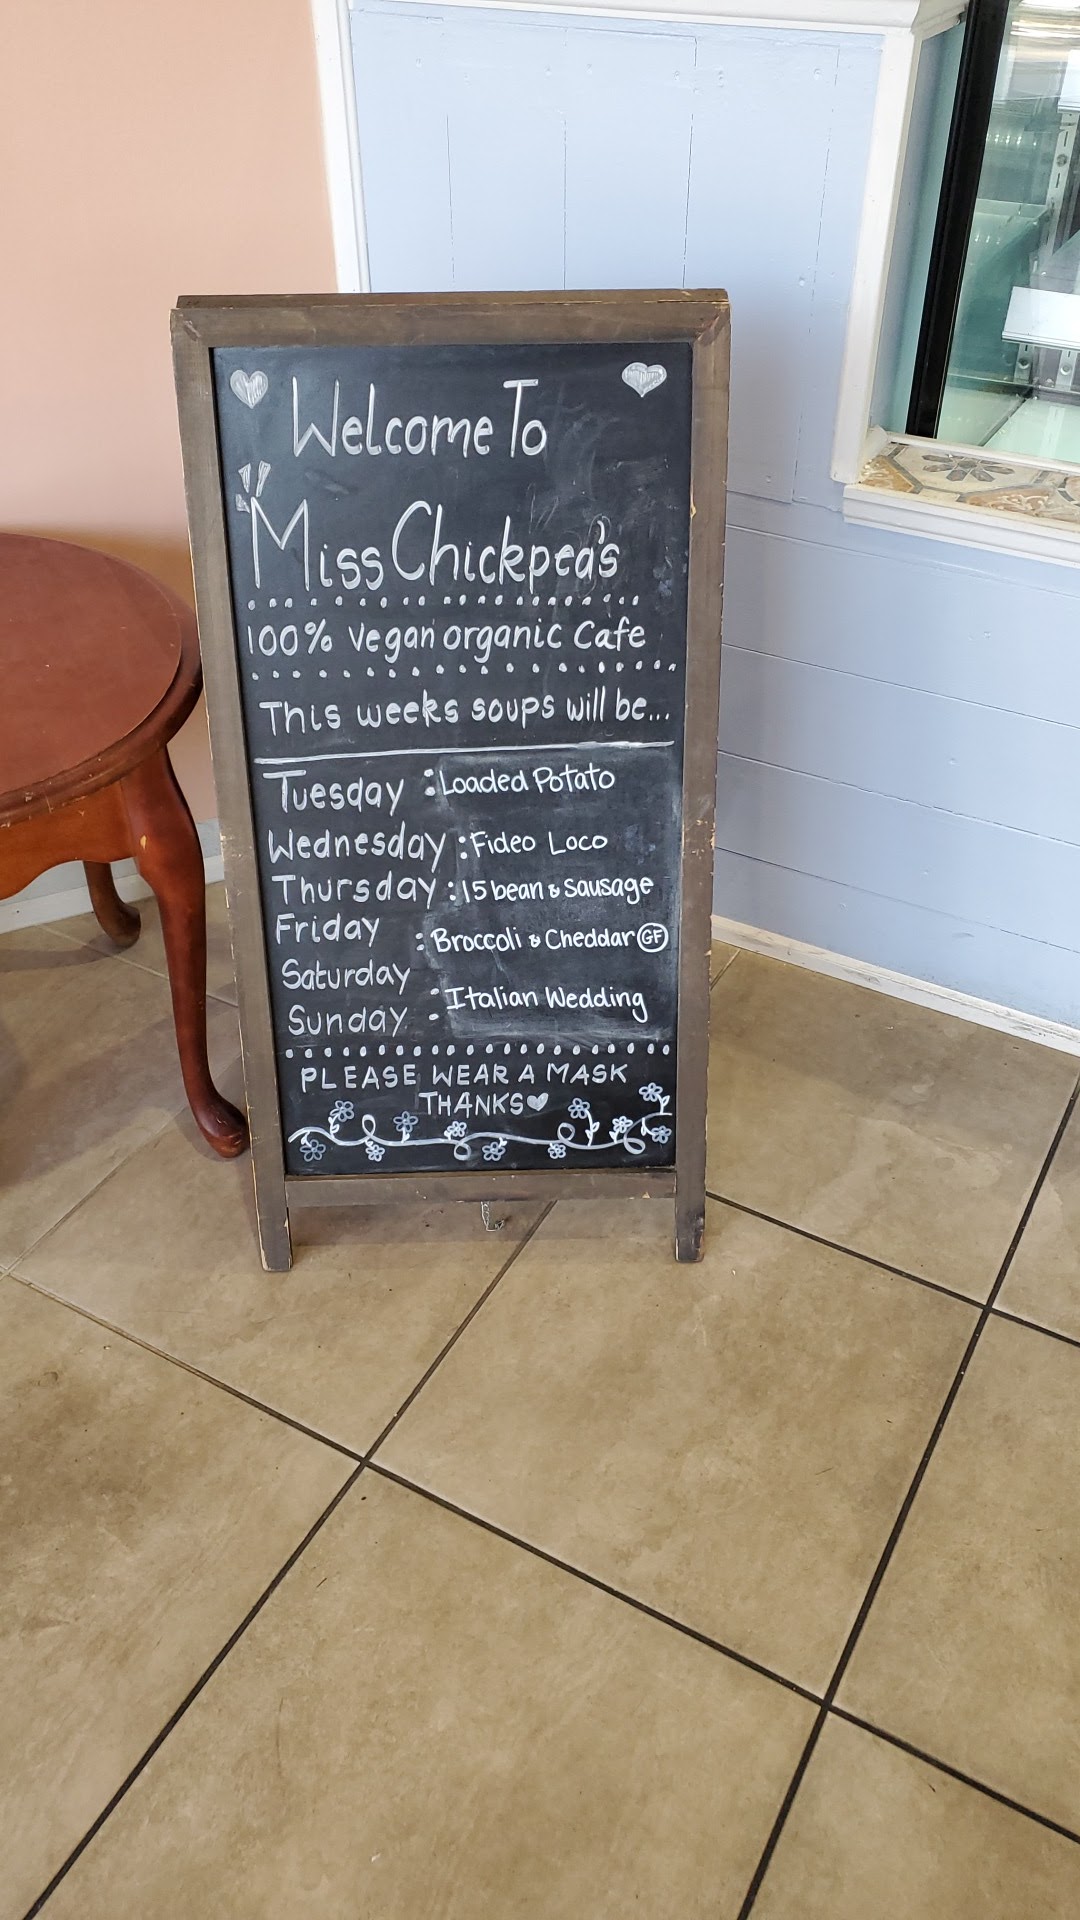 Welcome To
Miss Chickpea's
100% vegan organic Cafe
This weeks soups will be...
Tuesday : Loaded Potato
Wednesday : Fideo Loco
Thursday : 15 bean & sausage
Friday : Broccoli & Cheddar GF
Saturday
Sunday : Italian Wedding
PLEASE WEAR A MASK
THANKS